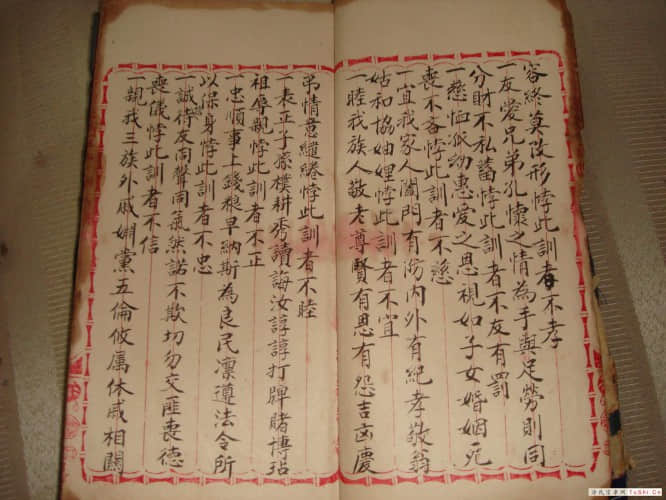 容終莫改形悖此訓者不孝
一友愛兄弟孔懷之情為手與足勞則同
分財不私蓄悖此訓者不友有罰
一慈恤派幼惠愛之恩視如子女婚姻死
喪不吝悖此訓者不慈
一宜我家人閫門有防內外有紀孝敬翁
姑和協妯娌悖此訓者不宜
一睦我族人敬老尊賢有恩有怨吉凶慶
弔情意繾綣悖此訓者不睦
一表正子家樸耕秀讀誨汝諄諄打牌賭博玷
祖辱親悖此訓者不正
一忠順事上錢糧早納斯為良民凜遵法令所
以保身悖此訓者不忠
一誠待友同聲同氣然諾不欺切勿交匪喪德
喪儀悖此訓者不信
一親我三族外戚婣黨五倫攸属休戚相關